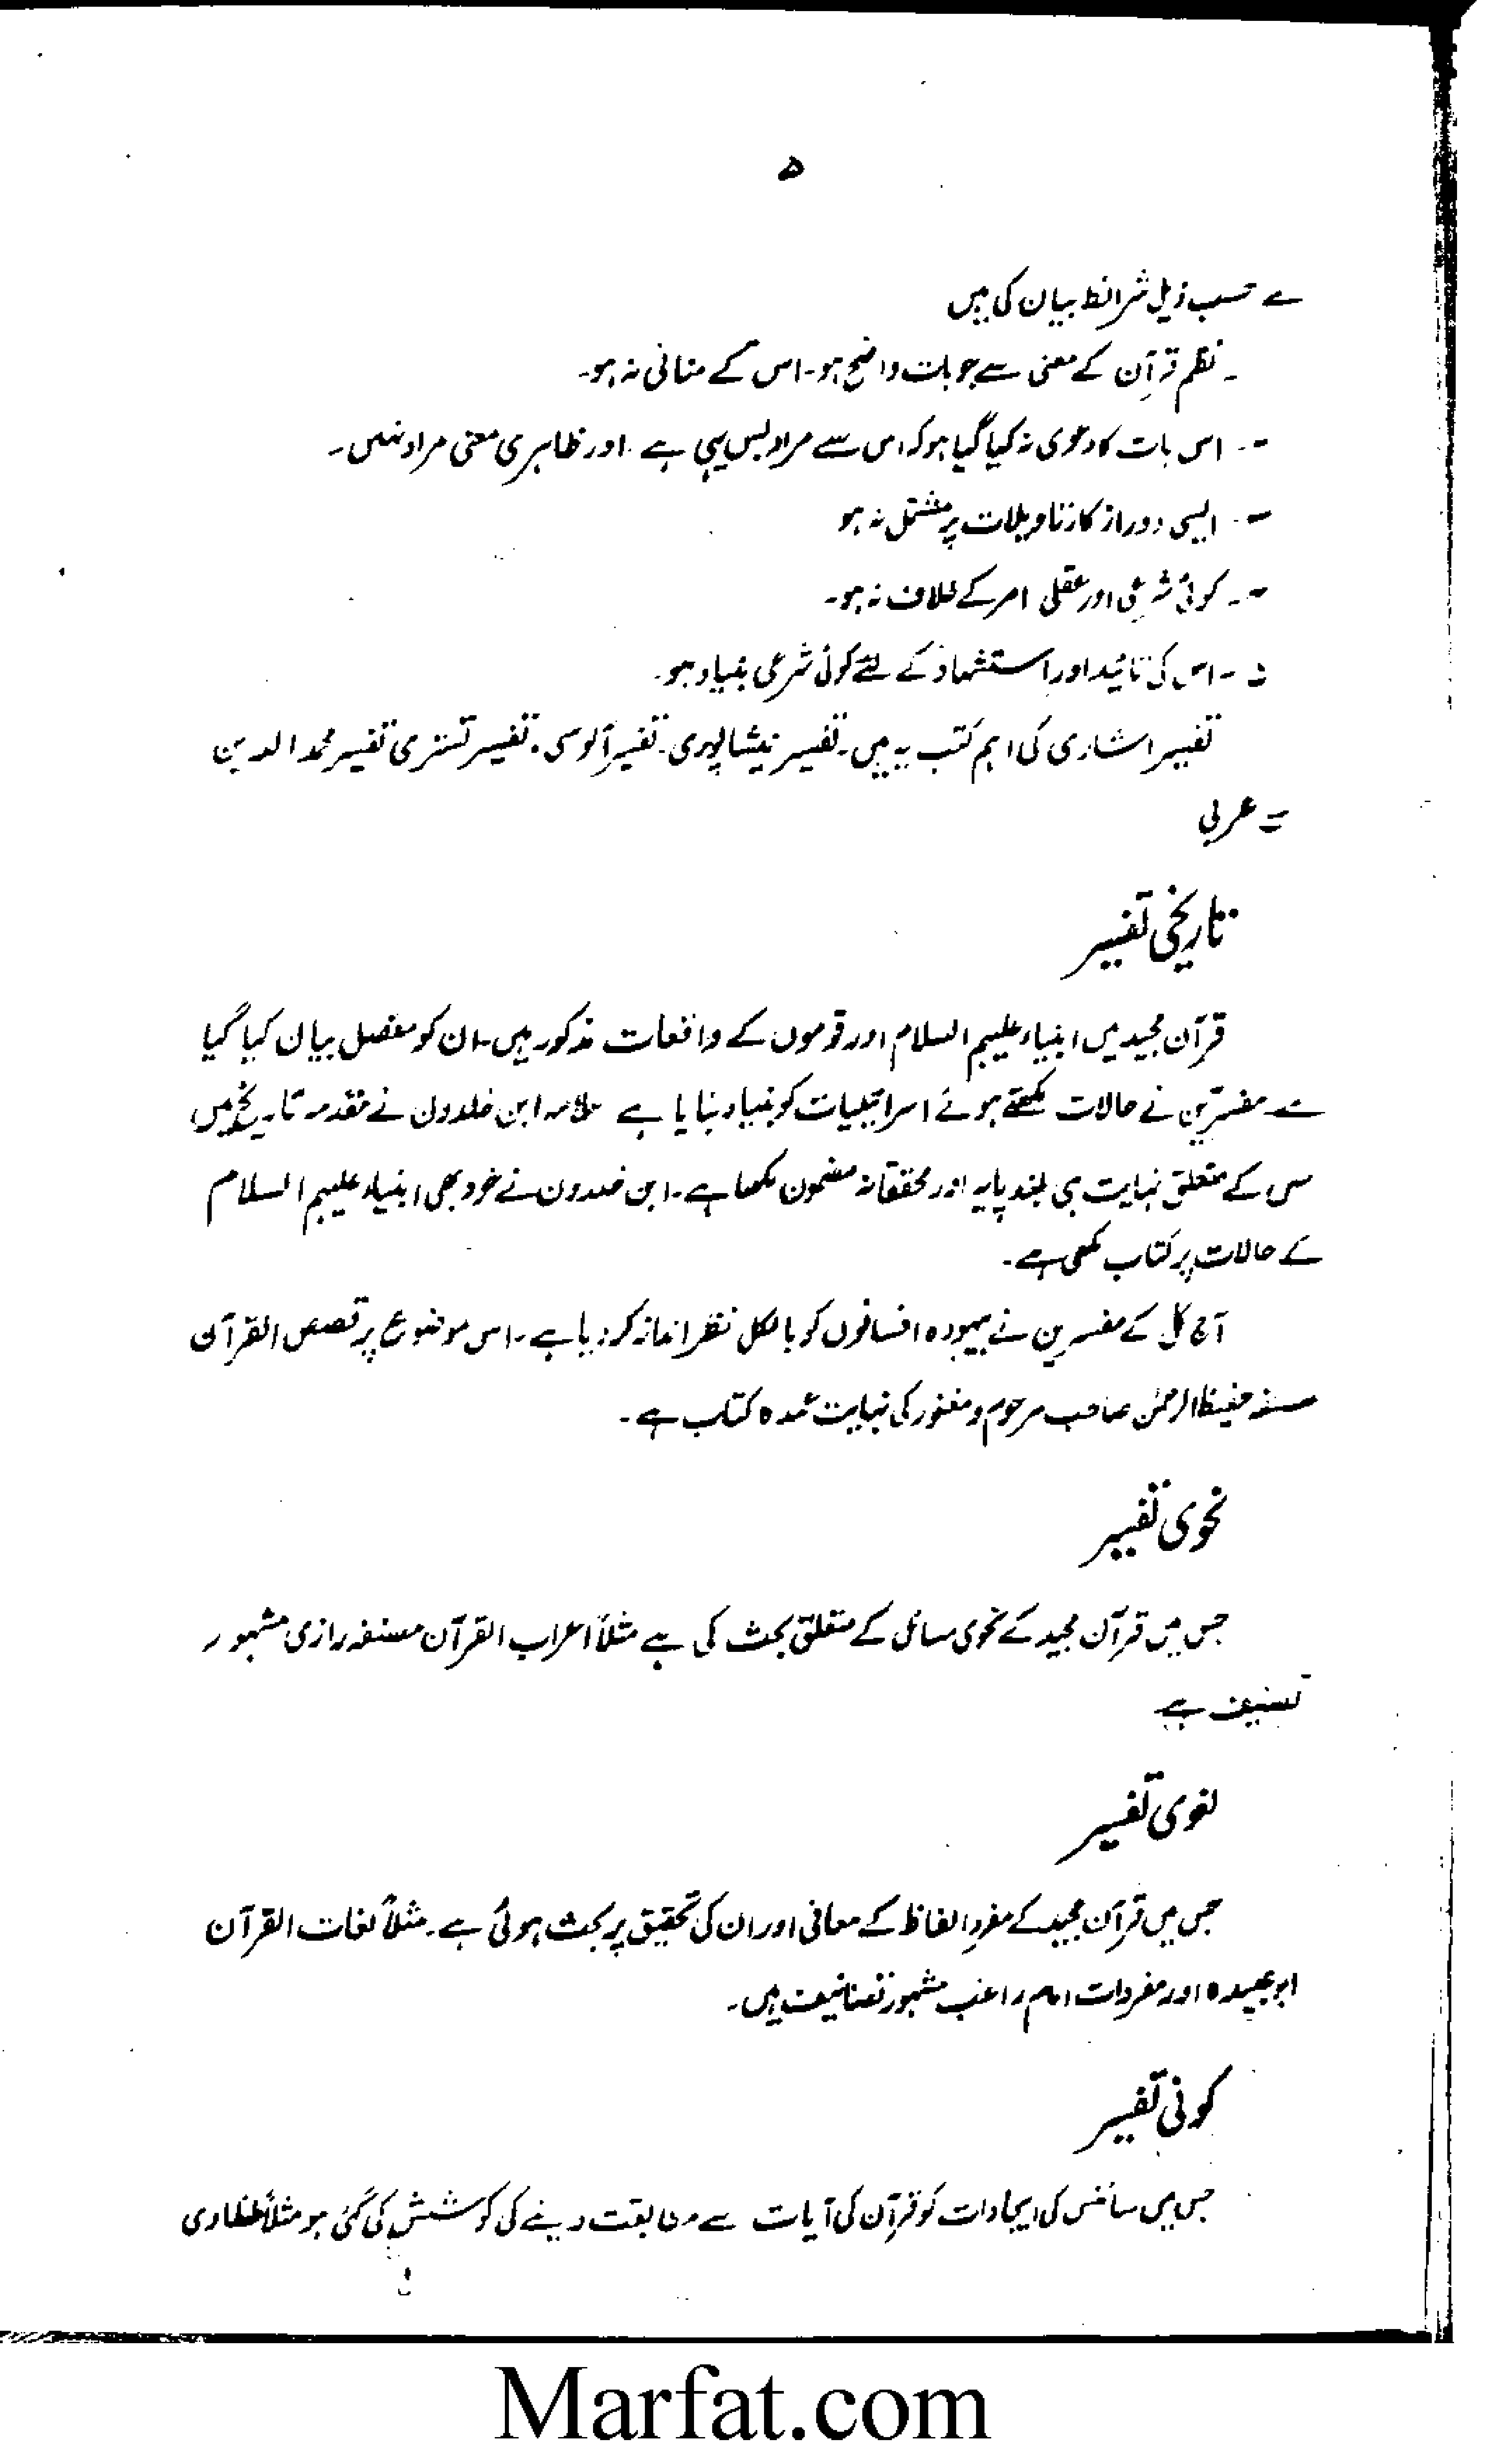 ۵
ے حسب ذیل شرائط بیان کی ہیں
۔ نظم قرآن کے معنی سے جو بات واضح ہو۔ اس کے منافی نہ ہو۔
۔ اس بات کا دعویٰ نہ کیا گیا ہو کہ اس سے مراد بس یہی ہے۔ اور ظاہری معنی مراد نہیں۔
۔ ایسی دور از کار تاویلات پر مشتمل نہ ہو
۔ کوئی شرعی اور عقلی امر کے خلاف نہ ہو۔
۔ اس کی تائید اور استشہاد کے لئے کوئی شرعی بنیاد ہو۔
تفسیر اشاری کی اہم کتب یہ ہیں۔ تفسیر نیشاپوری۔ تفسیر آلوسی۔ تفسیر تستری تفسیر محمد الدین
عربی
تاریخی تفسیر
قرآن مجید میں انبیاء علیہم السلام اور قوموں کے واقعات مذکور ہیں۔ ان کو مفصل بیان کیا گیا
ہے مفسرین نے حالات لکھتے ہوئے اسرائیلیات کو بنیاد بنایا ہے علامہ ابن خلدون نے مقدمہ تاریخ میں
س کے متعلق نہایت ہی بلند پایہ اور محققانہ مضمون لکھا ہے۔ ابن خلدون نے خود بھی انبیاء علیہم السلام
کے حالات پر کتاب لکھی ہے۔
آج کل کے مفسرین نے بیہودہ افسانوں کو بالکل نظر انداز کر دیا ہے۔ اس موضوع پر قصص القرآن
مصنفہ حفیظ الرحمٰن صاحب مرحوم و مغفور کی نہایت عمدہ کتاب ہے۔
نحوی تفسیر
جس میں قرآن مجید کے نحوی مسائل کے متعلق بحث کی ہے مثلاً اعراب القرآن مصنفہ رازی مشہور
تصنیف ہے
لغوی تفسیر
جس میں قرآن مجید کے مفرد الفاظ کے معانی اور ان کی تحقیق پر بحث ہوئی ہے۔ مثلاً لغات القرآن
ابو عبیدہ اور مفردات امام راغب مشہور تصانیف ہیں۔
کونی تفسیر
جس میں سائنس کی ایجادات کو قرآن کی آیات سے مطابقت دینے کی کوشش کی گئی ہو مثلاً طنطاوی
Marfat.com